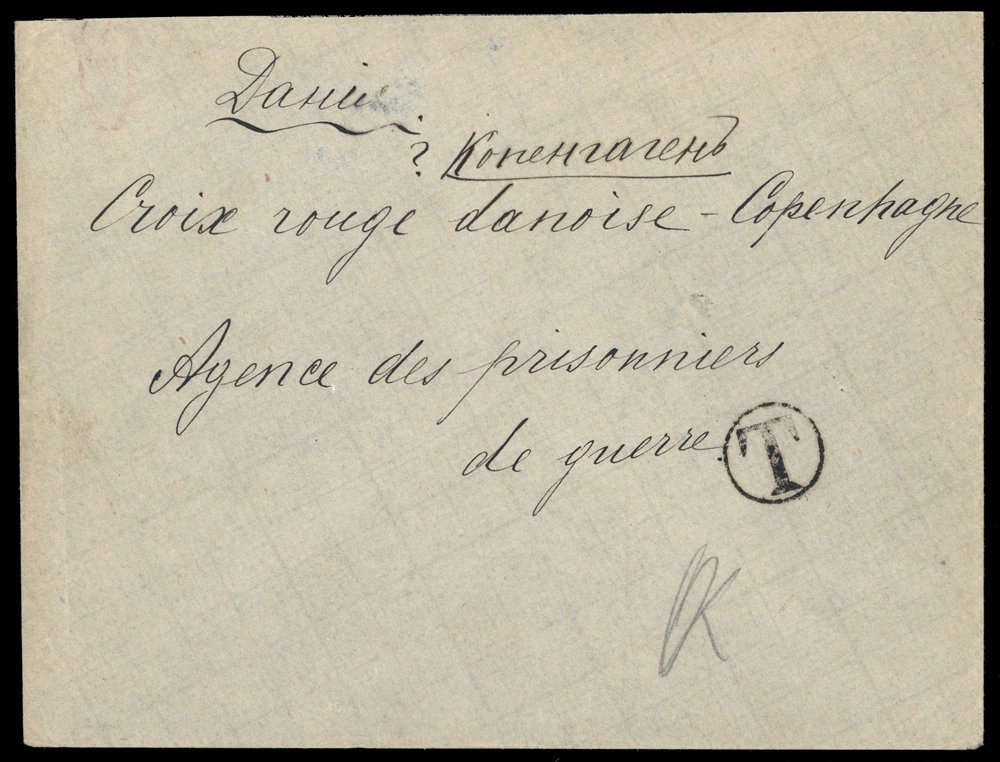 Данія
? Копенгагенъ
Croix rouge danoise – Copenhagne
Agence des prisonniers
de guerre.
T
K